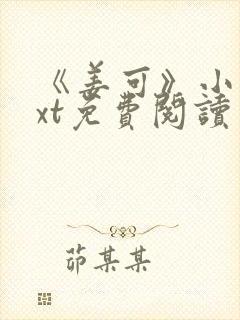 《姜可》小
xt免費閱讀
茆某某